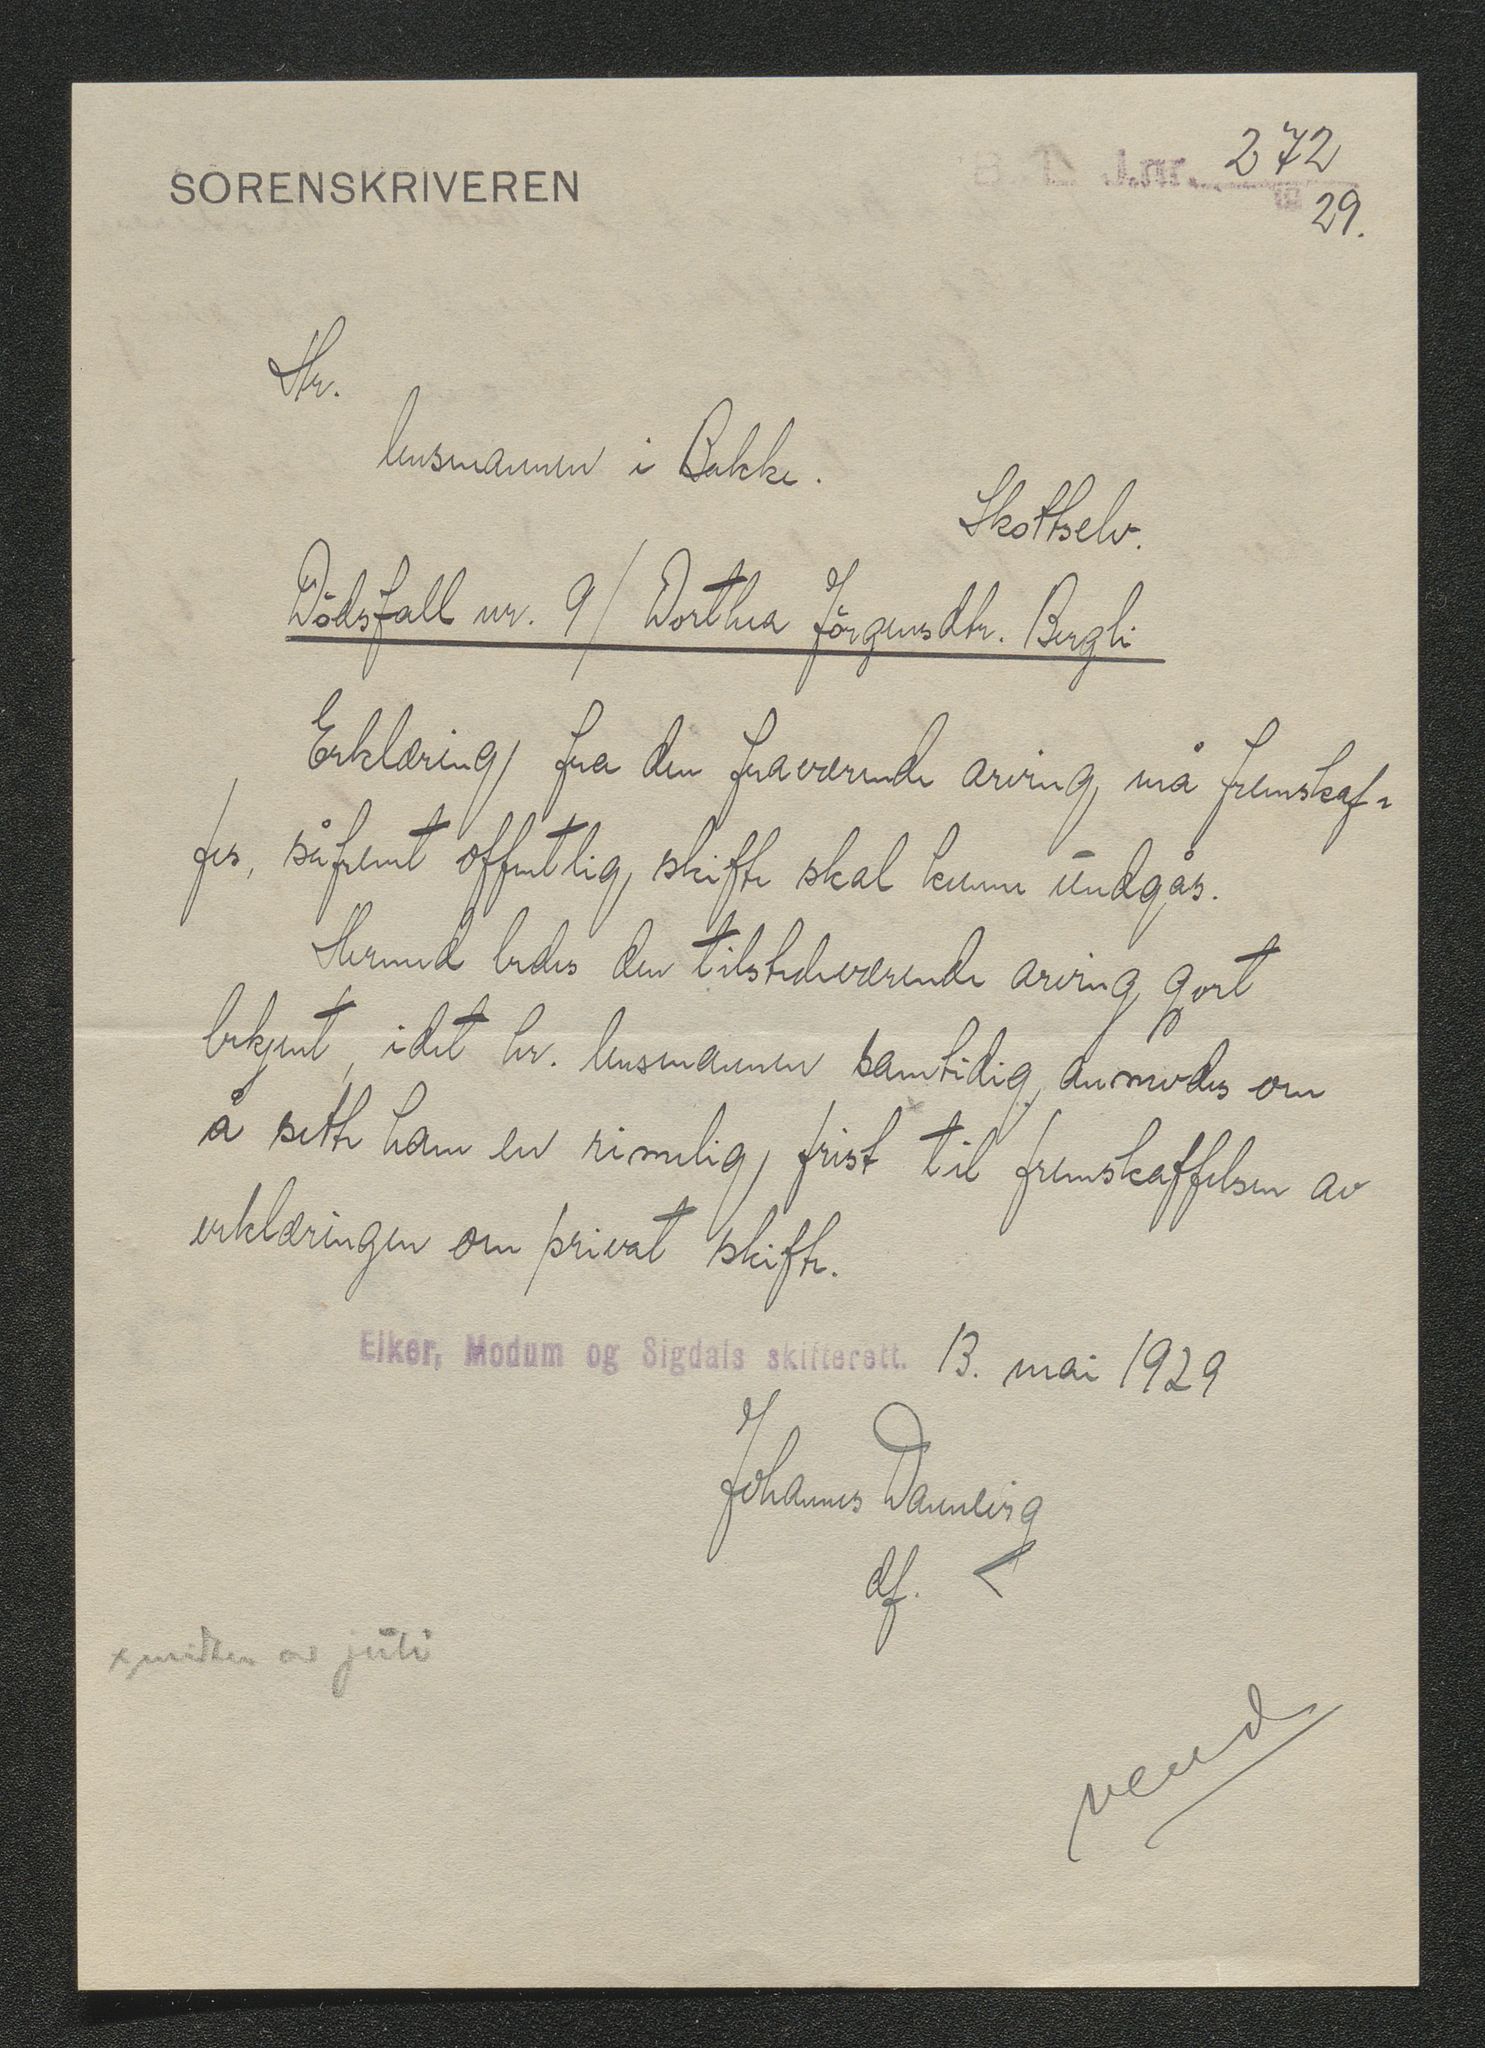 SORENSKRIVEREN
J.nr. 272
19 29.
Hr.
lensmannen i Bakke.
Skottselv.
Dödsfall nr. 9/ Dorthea Jörgensdtr. Bergli
Erklæring fra den fraværende arving må fremskaf-
fes, såfremt offentlig skifte skal kunne undgås.
Hermed bedes den tilstedeværende arving gjort
bekjent, idet hr. lensmannen samtidig anmodes om
å sette ham en rimelig frist til fremskaffelsen av
erklæringen om privat skifte.
Eiker, Modum og Sigdals skifterett. 13. mai 1929
Johannes
df.
x midten av juli
vend